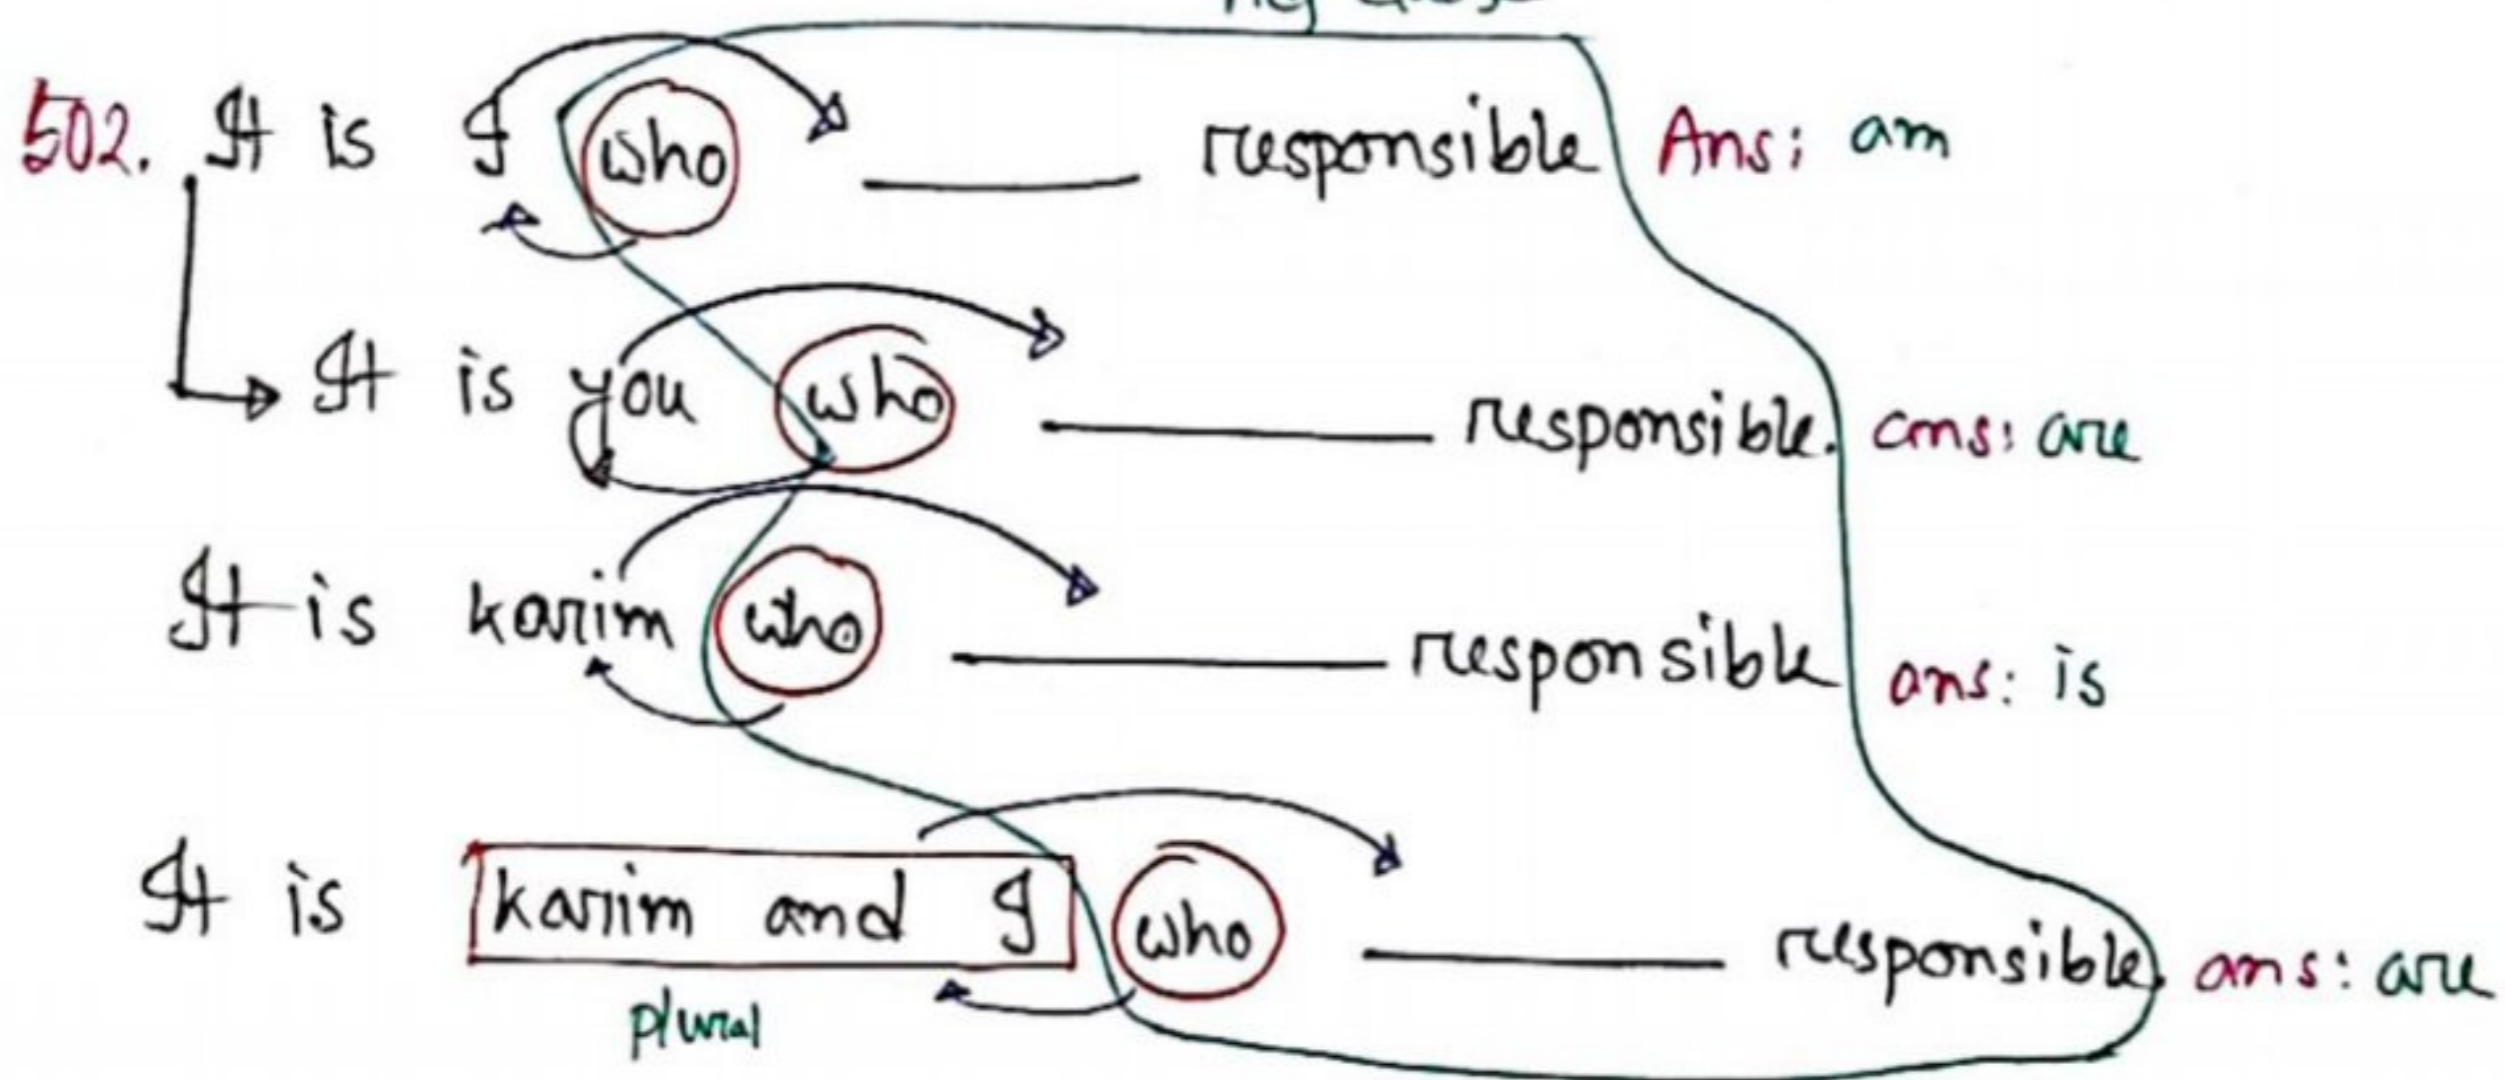 502. It is I who ______ responsible Ans: am
It is you who ______ responsible. ans: are
It is karim who ______ responsible ans: is
It is karim and I who ______ responsible. ans: are
plural